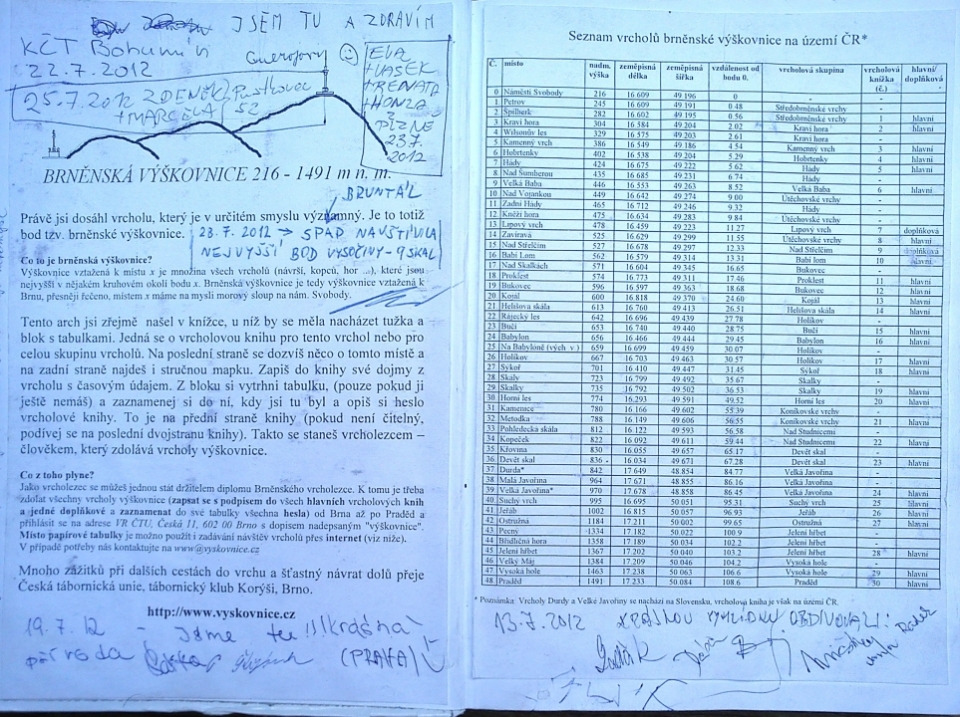 JSEM TU A ZDRAVÍM
KČT Bohumín
22.7.2012
25.7.2012 ZDENĚK
+MARCELA
52
EVA
+VAŠEK
+RENATA
+HONZA
PLZNĚ
23.7.
2012
BRNĚNSKÁ VÝŠKOVNICE 216 - 1491 m n. m.
BRUNTÁL
Právě jsi dosáhl vrcholu, který je v určitém smyslu významný. Je to totiž
bod tzv. brněnské výškovnice.
23.7.2012 → SPAD NAVŠTÍVILA
NEJVYŠŠÍ BOD VYSOČINY - 9 SKAL
Co to je brněnská výškovnice?
Výškovnice vztažená k místu x je množina všech vrcholů (návrší, kopců, hor ...), které jsou
nejvyšší v nějakém kruhovém okolí bodu x. Brněnská výškovnice je tedy výškovnice vztažená k
Brnu, přesněji řečeno, místem x máme na mysli morový sloup na nám. Svobody.
Tento arch jsi zřejmě našel v knížce, u níž by se měla nacházet tužka a
blok s tabulkami. Jedná se o vrcholovou knihu pro tento vrchol nebo pro
celou skupinu vrcholů. Na poslední straně se dozvíš něco o tomto místě a
na zadní straně najdeš i stručnou mapku. Zapiš do knihy své dojmy z
vrcholu s časovým údajem. Z bloku si vytrhni tabulku, (pouze pokud ji
ještě nemáš) a zaznamenej si do ní, kdy jsi tu byl a opiš si heslo
vrcholové knihy. To je na přední straně knihy (pokud není čitelný,
podívej se na poslední dvojstranu knihy). Takto se staneš vrcholezcem –
člověkem, který zdolává vrcholy výškovnice.
Co z toho plyne?
Jako vrcholezec se můžeš jednou stát držitelem diplomu Brněnského vrcholezce. K tomu je třeba
zdolat všechny vrcholy výškovnice (zapsat se s podpisem do všech hlavních vrcholových knih
a jedné doplňkové a zaznamenat do své tabulky všechna hesla) od Brna až po Praděd a
přihlásit se na adrese VR ČTU, Česká 11, 602 00 Brno s dopisem nadepsaným "výškovnice".
Místo papírové tabulky je možno použít i zadávání návštěv vrcholů přes internet (viz níže).
V případě potřeby nás kontaktujte na www@vyskovnice.cz
Mnoho zážitků při dalších cestách do vrchu a šťastný návrat dolů přeje
Česká tábornická unie, tábornický klub Korýši, Brno.
http://www.vyskovnice.cz
19.7.12 - Jsme tu !!! Krásná
příroda (PRAHA)
Seznam vrcholů brněnské výškovnice na území ČR*
Č. místo nadm. výška zeměpisná délka zeměpisná šířka vzdálenost od bodu 0. vrcholová skupina vrcholová knížka (č.) hlavní/ doplňková
0 Náměstí Svobody 216 16 609 49 196 0 -
1 Petrov 245 16 609 49 191 0 48 Středobrněnské vrchy -
2 Špilberk 282 16 602 49 195 0 56 Středobrněnské vrchy 1 hlavní
3 Kraví hora 304 16 584 49 204 2 02 Kraví hora 2 hlavní
4 Wilsonův les 329 16 575 49 203 2 61 - -
5 Kamenný vrch 386 16 549 49 186 4 54 Kamenný vrch 3 hlavní
6 Hobrtenky 402 16 538 49 204 5 29 Hobrtenky 4 hlavní
7 Hády 424 16 675 49 222 5 62 Hády 5 hlavní
8 Nad Šumberou 435 16 685 49 231 6 74 Hády -
9 Velká Baba 446 16 553 49 263 8 52 Velká Baba 6 hlavní
10 Nad Vorankou 449 16 642 49 274 9 00 Útěchovské vrchy -
11 Zadní Hády 465 16 712 49 246 9 32 Hády -
12 Kněží hora 475 16 634 49 283 9 84 Útěchovské vrchy -
13 Lipový vrch 478 16 459 49 223 11.27 Lipový vrch 7 doplňková
14 Zavíravá 525 16 629 49 299 11.55 Útěchovské vrchy 8 hlavní
15 Nad Střelčím 527 16 678 49 297 12.33 Nad Střelčím 9 doplňková
16 Babí Lom 562 16 579 49 314 13.31 Babí lom 10 hlavní
17 Nad Skalkách 571 16 604 49 345 16.65 Bukovec -
18 Proklest 574 16 773 49 311 17.46 Proklest 11 hlavní
19 Bukovec 596 16 597 49 363 18.68 Bukovec 12 hlavní
20 Kojál 600 16 818 49 370 24.60 Kojál 13 hlavní
21 Helišova skála 613 16 760 49 413 26.51 Helišova skála 14 hlavní
22 Rájecký les 642 16 696 49 439 27.78 Holíkov -
23 Bučí 653 16 740 49 440 28.75 Bučí 15 hlavní
24 Babylon 656 16 466 49 444 29.45 Babylon 16 hlavní
25 Na Babyloně (vých. v.) 659 16 699 49 459 30.07 Holíkov -
26 Holíkov 667 16 703 49 463 30.57 Holíkov 17 hlavní
27 Sýkoř 701 16 410 49 447 31.45 Sýkoř 18 hlavní
28 Skály 723 16 799 49 492 35.67 Skalky -
29 Skalky 735 16 792 49 502 36.53 Skalky 19 hlavní
30 Horní les 774 16.293 49 591 49.52 Horní les 20 hlavní
31 Kamenice 780 16 166 49 602 55.39 Koníkovské vrchy -
32 Metodka 788 16.149 49 606 56.55 Koníkovské vrchy 21 hlavní
33 Pohledecká skála 812 16 122 49 593 56.58 Nad Studnicemi -
34 Kopeček 822 16 092 49 611 59.44 Nad Studnicemi 22 hlavní
35 Křovina 830 16 055 49 657 65.17 Devět skal -
36 Devět skal 836 16 034 49 671 67.28 Devět skal 23 hlavní
37 Durda* 842 17 649 48 854 84.77 Velká Javořina -
38 Malá Javořina 964 17 671 48 855 86.16 Velká Javořina -
39 Velká Javořina* 970 17 678 48 858 86.45 Velká Javořina 24 hlavní
40 Suchý vrch 995 16 695 50 051 95.31 Suchý vrch 25 hlavní
41 Jeřáb 1002 16 815 50 057 96.93 Jeřáb 26 hlavní
42 Ostružná 1184 17 211 50 002 99.65 Ostružná 27 hlavní
43 Pecný 1334 17 182 50 022 100.9 Jelení hřbet -
44 Břidličná hora 1358 17 189 50 034 102.2 Jelení hřbet -
45 Jelení hřbet 1367 17 202 50 040 103.2 Jelení hřbet 28 hlavní
46 Velký Máj 1384 17 209 50 046 104.2 Vysoká hole -
47 Vysoká hole 1463 17 238 50 063 106.6 Vysoká hole 29 hlavní
48 Praděd 1491 17 233 50 084 108.6 Praděd 30 hlavní
* Poznámka: Vrcholy Durdy a Velké Javořiny se nachází na Slovensku, vrcholová kniha je však na území ČR.
13.7.2012 KRÁSNOU VYHLÍDKU OBDIVOVALI: